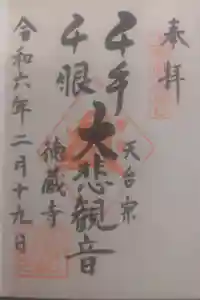 奉拝
千手
千眼
大悲観音
天台宗
徳蔵寺
令和六年二月十九日